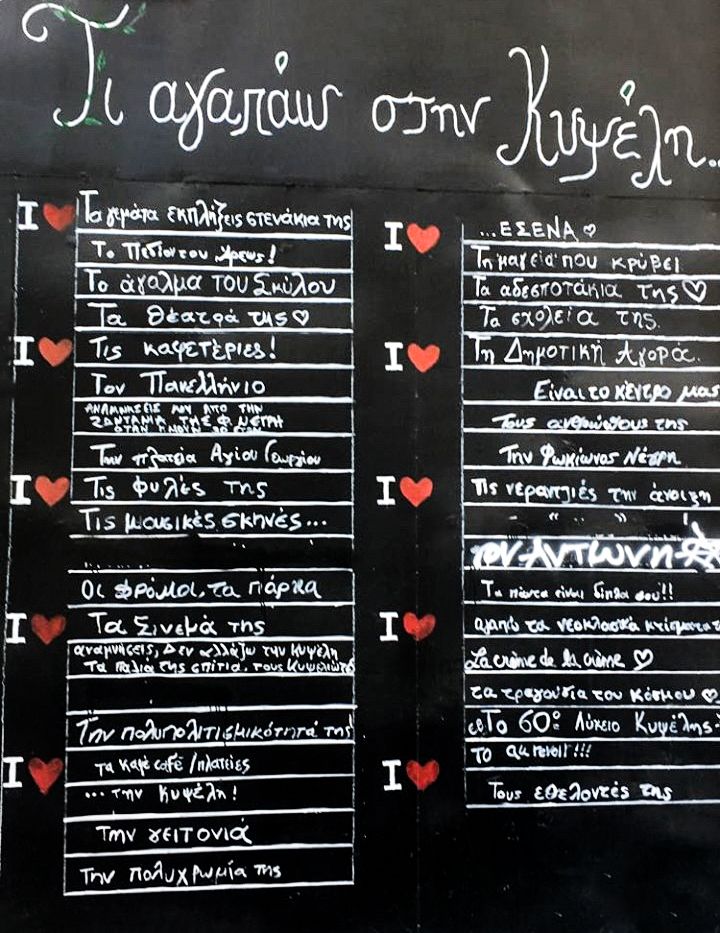 Τι αγαπάω στην Κυψέλη...
I ♥ Τα γεμάτα εκπλήξεις στενάκια της
Το Πεδίον του Άρεως!
Το άγαλμα του Σκύλου
Τα Θέατρά της ♡
I ♥ Τις καφετέριες!
Τον Πανελλήνιο
ΑΝΑΜΝΗΣΕΙΣ ΜΟΥ ΑΠΟ ΤΗΝ
ΖΩΝΤΑΝΙΑ ΤΗΣ Φ. ΝΕΓΡΗ
Την πλατεία Αγίου Γεωργίου
I ♥ Τις φυλές της
Τις μουσικές σκηνές...
Οι δρόμοι, τα πάρκα
I ♥ Τα Σινεμά της
αναμνήσεις, Δεν αλλάζω την Κυψέλη
Τα παλιά της σπίτια, τους
Την πολυπολιτισμικότητά της
I ♥ τα καφέ café / πλατείες
... την Κυψέλη!
Την γειτονιά
Την πολυχρωμία της
I ♥ ...ΕΣΕΝΑ ♡
Τη μαγεία που κρύβει
Τα αδεσποτάκια της ♡
Τα σχολεία της.
I ♥ Τη Δημοτική Αγορά.
Είναι το κέντρο μας
Τους ανθρώπους της
Την Φωκίωνος Νέγρη
I ♥ Τις νεραντζιές την άνοιξη
- " .. " -
τον Αντώνη
Τα πάντα είναι δίπλα σου!!
I ♥ αγαπώ τα νεοκλασικά κτίσματα
La crème de la crème ♡
τα τραγούδια του κόσμου ♡
Το 60º Λύκειο Κυψέλης
το au revoir!!!
I ♥ Τους εθελοντές της